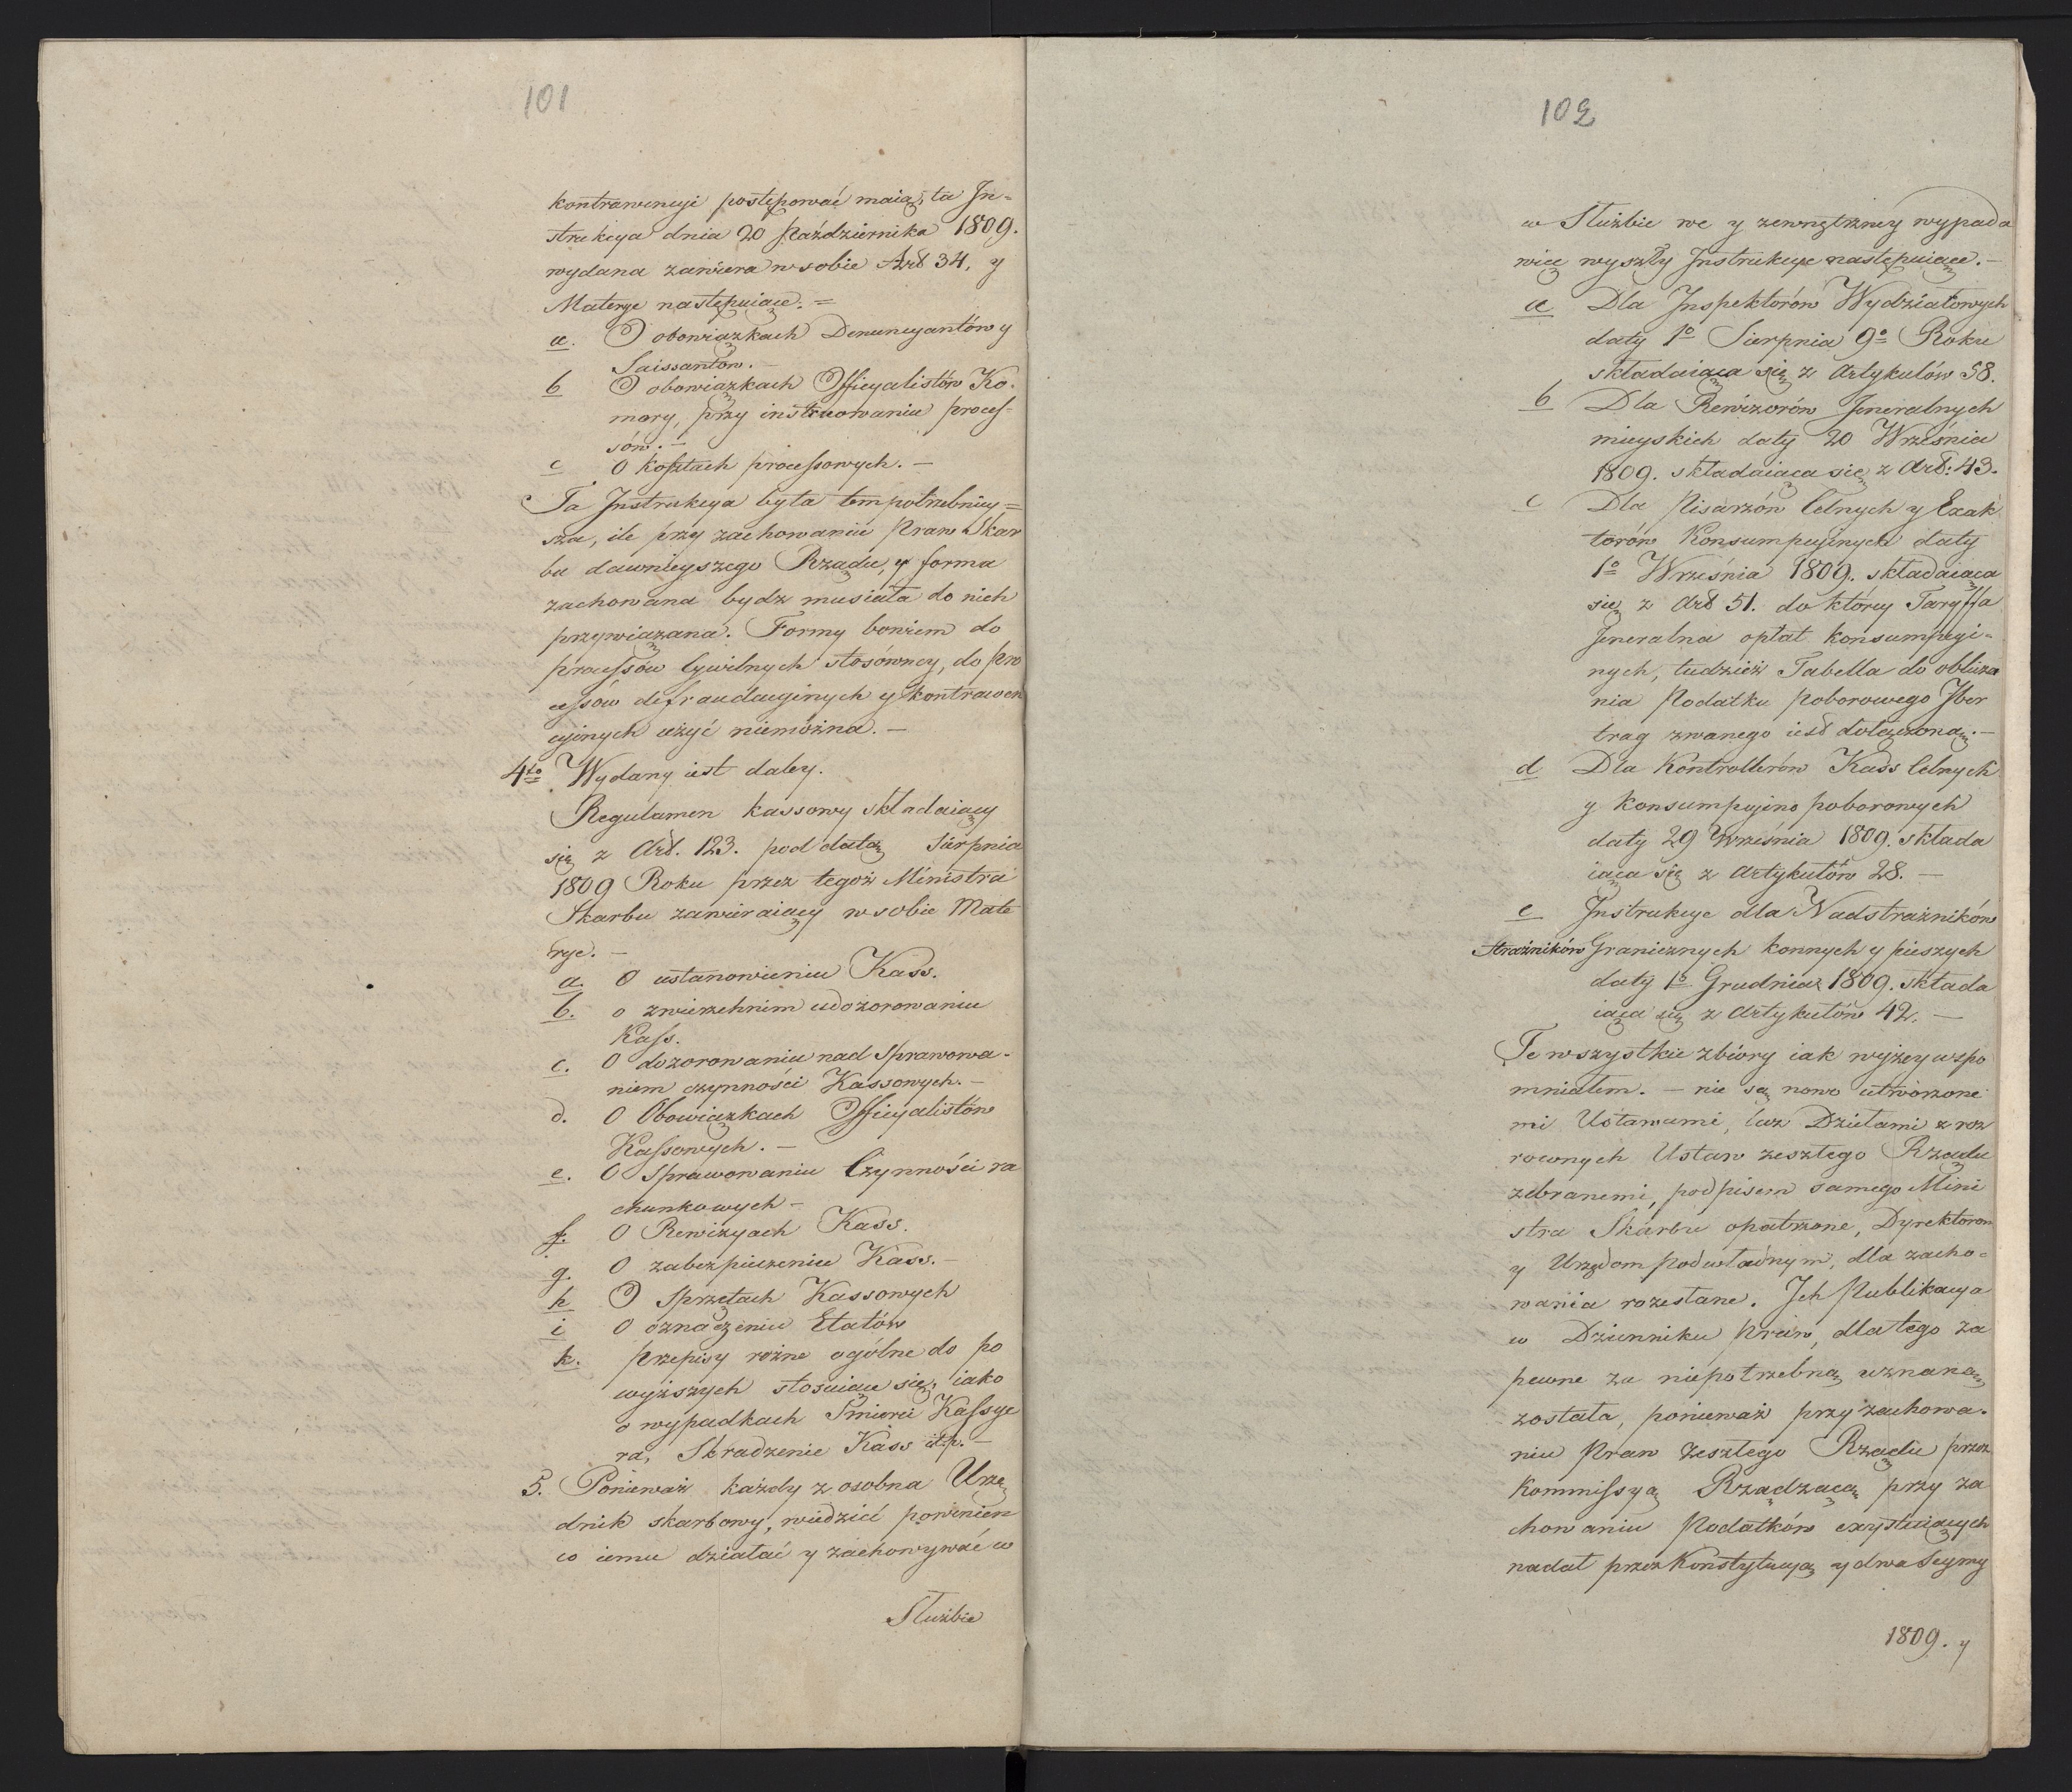 101
kontrawencyi postępować maią, ta In=
strukcya dnia 20 Października 1809.
wydana zawiera w sobie Art 34, y
Materye następuiące. =
a. O obowiązkach Denuncyantów y
Saissantów. -
b O obowiązkach Officyalistów Ko-
mory, przy instruowaniu proces-
sów. -
c O kosztach processowych. -
Ta Instrukcya była tem potrzebniey=
sza, ile przy zachowaniu Praw Skar
bu dawnieyszego Rządu, y forma
zachowana bydz musiała do nich
przywiązana. Formy bowiem do
processów Cywilnych stosówney, do pro
cessów defraudacyinych y kontrawen
cyinych użyć niemożna. -
4to Wydany iest daley.
Regulamen kassowy składaiący
się z Art. 123. pod datą Sierpnia
1809 Roku przez tegoż Ministra
Skarbu zawieraiący w sobie Mate
rye. -
a. O ustanowieniu Kass.
b. o zwierzchnim udozorowaniu
Kass.
c. O dozorowaniu nad Sprawowa-
niem czynności Kassowych. -
d. O Obowiązkach Officyalistów
Kassowych. -
e. O Sprawowaniu Czynności ra
chunkowych -
f. O Rewizyach Kass.
g. O zabezpieczeniu Kass. -
h O Sprzętach Kassowych
i O oznaczeniu Etatów
k. przepisy rożne ogólne do po
wyższych stosuiące się, iako
o wypadkach Smierci Kassye
ra, Skradzenie Kass itp. -
5. Ponieważ każdy z osobna Urzę
dnik skarbowy, wiedzieć powinien
co iemu działać y zachowywać w
Służbie
102
w Służbie we y zewnętrzney wypada
więc wyszły Instrukcye następuiące. -
a Dla Inspektorów Wydziałowych
daty 1o Sierpnia 9o Roku
składaiąca się z Artykułów 58.
b Dla Rewizorów Jeneralnych
mieyskich daty 20 Września
1809. składaiaca się z Art: 43.
c Dla Pisarzów Celnych y Exak
torów Konsumpcyinych daty
1o Września 1809. składaiąca
się z Art 51. do którey Taryffa
Jeneralna opłat konsumpcyi=
nych, tudzież Tabella do oblicza
nia Podatku poborowego Iber
trag zwanego iest dołączoną. -
d Dla Kontrollerów Kass Celnych
y Konsumpcyino poborowych
daty 29 Września 1809. składa
iąca się z Artykułów 28. -
e Instrukcye dla Nadstrażników
Strażników Granicznych konnych y pieszych
daty 1o Grudnia 1809. składa
iąca się z Artykułów 42. -
Te wszystkie zbiory iak wyżey wspo
mniałem. - nie są nowo utworzone
mi Ustawami, lecz Dziełami z roz
rownych Ustaw zeszłego Rządu
zebranemi, podpisem samego Mini
stra Skarbu opatrzone, Dyrektorom
y Urzędom podwładnym, dla zacho=
wania rozesłane. Ich Publikacya
w Dzienniku Praw, dlatego za
pewne za niepotrzebną uznaną
została, ponieważ przy zachowa-
niu Praw Zeszłego Rządu przez
Kommissyą Rządzącą przy za
chowaniu Podatków exystuiących
nadal przez Konstytucyą y dwa Seymy
1809. y